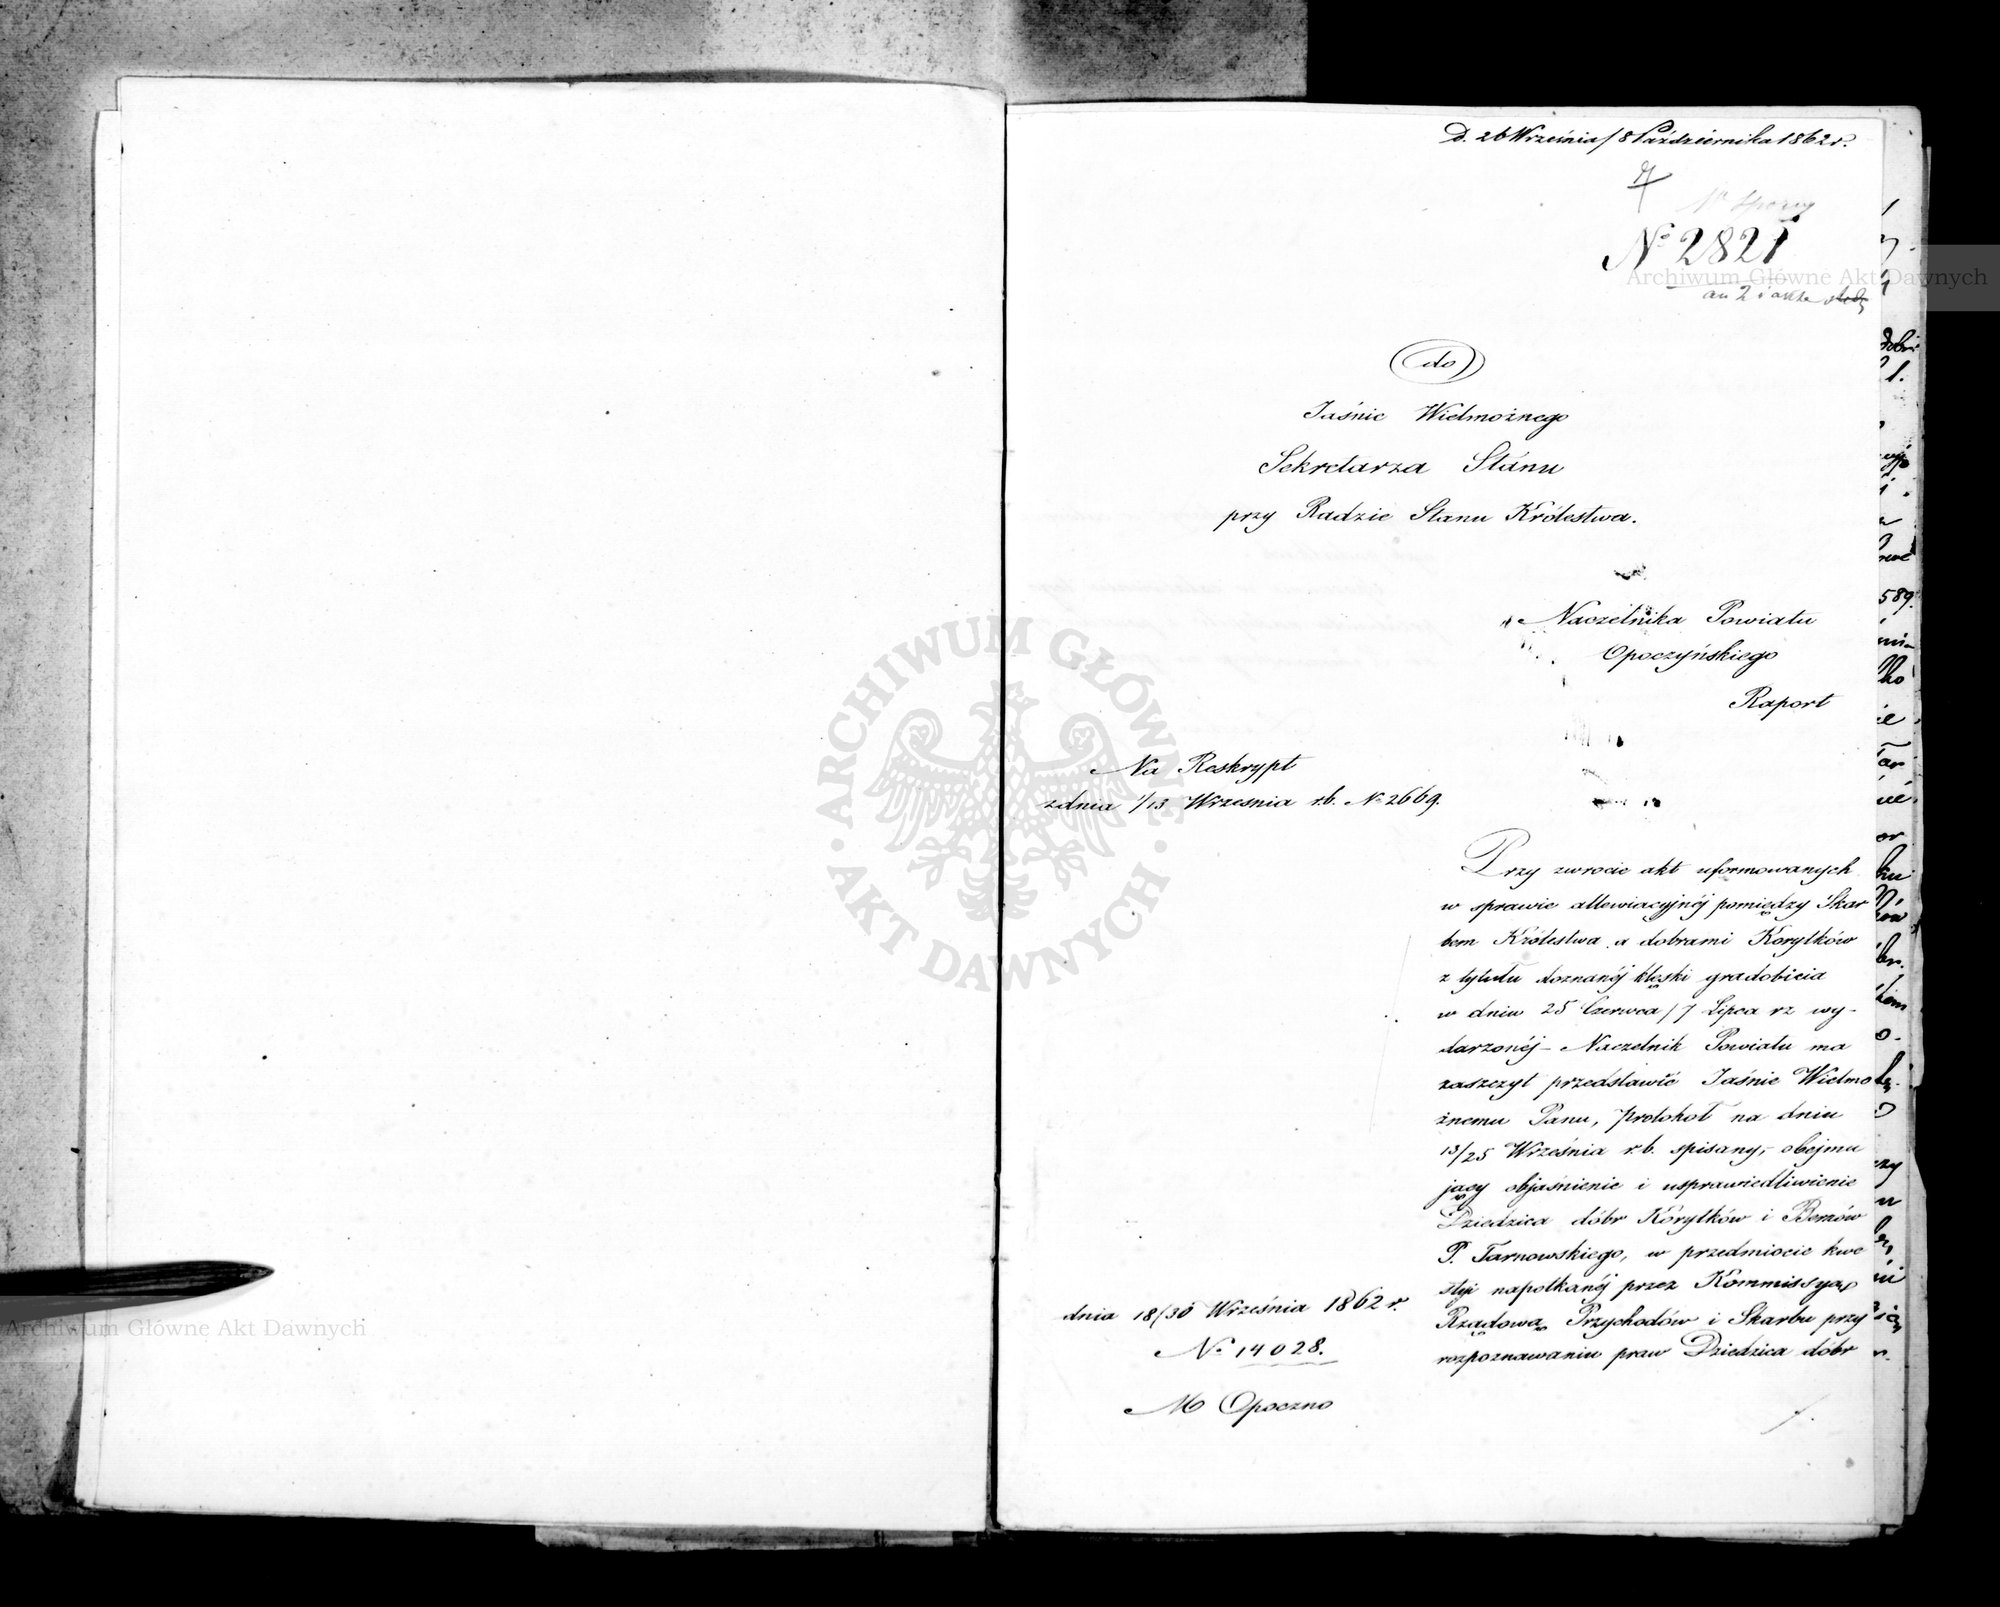 D. 26 Września/8 Października 1862 r.
7
Nº 2821
do
Jaśnie Wielmożnego
Sekretarza Stanu
przy Radzie Stanu Królestwa.
Naczelnika Powiatu
Opoczyńskiego
Raport
Na Reskrypt
z dnia 1/13 Września r.b. Nº 2669.
Przy zwrocie akt uformowanych
w sprawie allewiacyjnéj pomiędzy Skar
bem Królestwa a dobrami Korytków
z tytułu doznanéj klęski gradobicia
w dniu 25 Czerwca/7 Lipca rz wy-
darzonéj – Naczelnik Powiatu ma
zaszczyt przedstawić Jaśnie Wielmo
żnemu Panu, protokół na dniu
13/25 Września r.b. spisany, – obejmu
jący objaśnienie i usprawiedliwienie
Dziedzica dóbr Korytków i Bemów
P. Tarnowskiego, w przedmiocie kwe
styi napotkanéj przez Kommissyą
Rządową Przychodów i Skarbu przy
rozpoznawaniu praw Dziedzica dóbr
dnia 18/30 Września 1862 r.
Nº 14028.
M Opoczno
ARCHIWUM GŁÓWNE AKT DAWNYCH
Archiwum Główne Akt Dawnych
Archiwum Główne Akt Dawnych